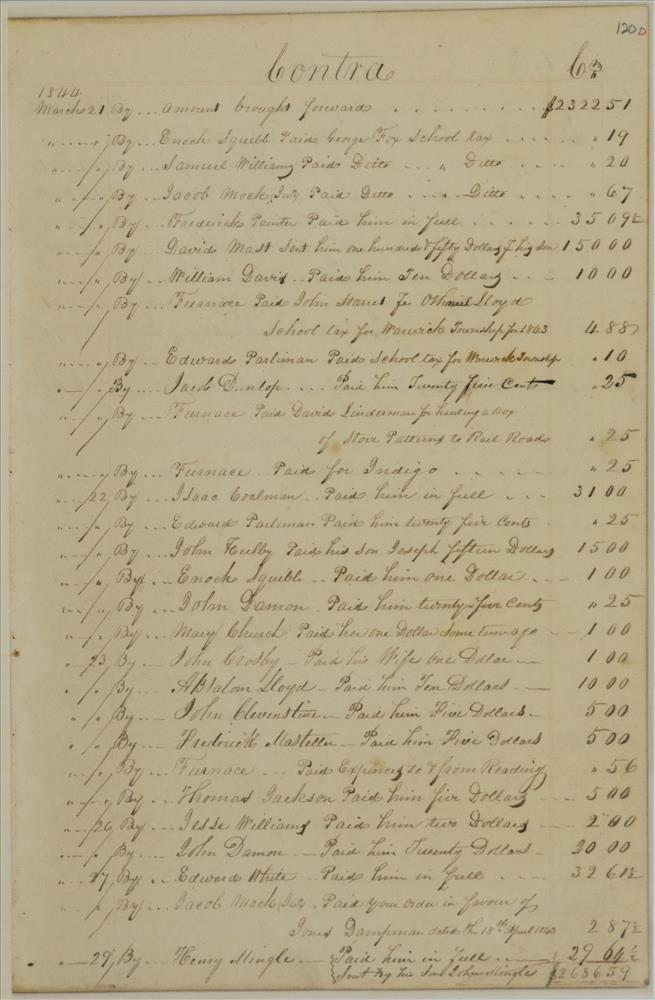 120
Contra Cr
1844
March 21 By ... Amount brought forward . . . . . . . . . $2322 51
" " By ... Enoch Squibb Paid George Fox School tax . . . . . " 19
" " By ... Samuel Williams Paid Ditto ... " Ditto . . . . " 20
" " By ... Jacob Mock Jur Paid Ditto ..... Ditto . . . . " 67
" " By ... Frederick Painter Paid him in full . . . . . . 35 09½
" " By ... David Mast Sent him one hundred & fifty Dollars p his Son 150 00
" " By ... William David .. Paid him Ten Dollars . . . 10 00
" " By ... Furnace Paid John Starret for Othniel Lloyd
School tax for Warwick Township for 1843 4 88
" " By ... Edward Parliman Paid School tax for Warwick Township " 10
" " By .... Jacob Dunlop .... Paid him Twenty five Cents " 25
" " By ... Furnace Paid David Linderman for hauling a Box
of Stove Patterns to Rail Road " 25
" " By ... Furnace .. Paid for Indigo . . . . . " 25
" 22 By ... Isaac Coalman .. Paid him in full . . . 31 00
" " By ... Edward Parliman Paid him twenty five Cents . " 25
" " By ... John Hulby Paid his Son Joseph fifteen Dollars 15 00
" " By ... Enoch Squibb .. Paid him one Dollar . . . 1 00
" " By ... John Damon . Paid him twenty five Cents " 25
" " By ... Mary Church Paid her one Dollar Some time ago - 1 00
" 23 By ... John Crosby - Paid his Wife One Dollar - 1 00
" " By ... Absalom Lloyd - Paid him Ten Dollars - 10 00
" " By ... John Clevenstine - Paid him Five Dollars - 5 00
" " By ... Frederick Masteller - Paid him Five Dollars 5 00
" " By ... Furnace ... Paid Expences to & from Reading " 56
" " By ... Thomas Jackson Paid him five Dollars - 5 00
" 26 By ... Jesse Williams Paid him two Dollars - 2 00
" " By ... John Damon - Paid him Twenty Dollars - 20 00
" 27 By ... Edward White .. Paid him in full . . . . 32 61½
" " By ... Jacob Mock Jur . Paid your order in favour of
Jones Dampman dated the 18th April 1843 2 87½
" 29 By ... Henry Mingle - Paid him in full - 29 64½
Sent by his Son John Mingle $2686 59